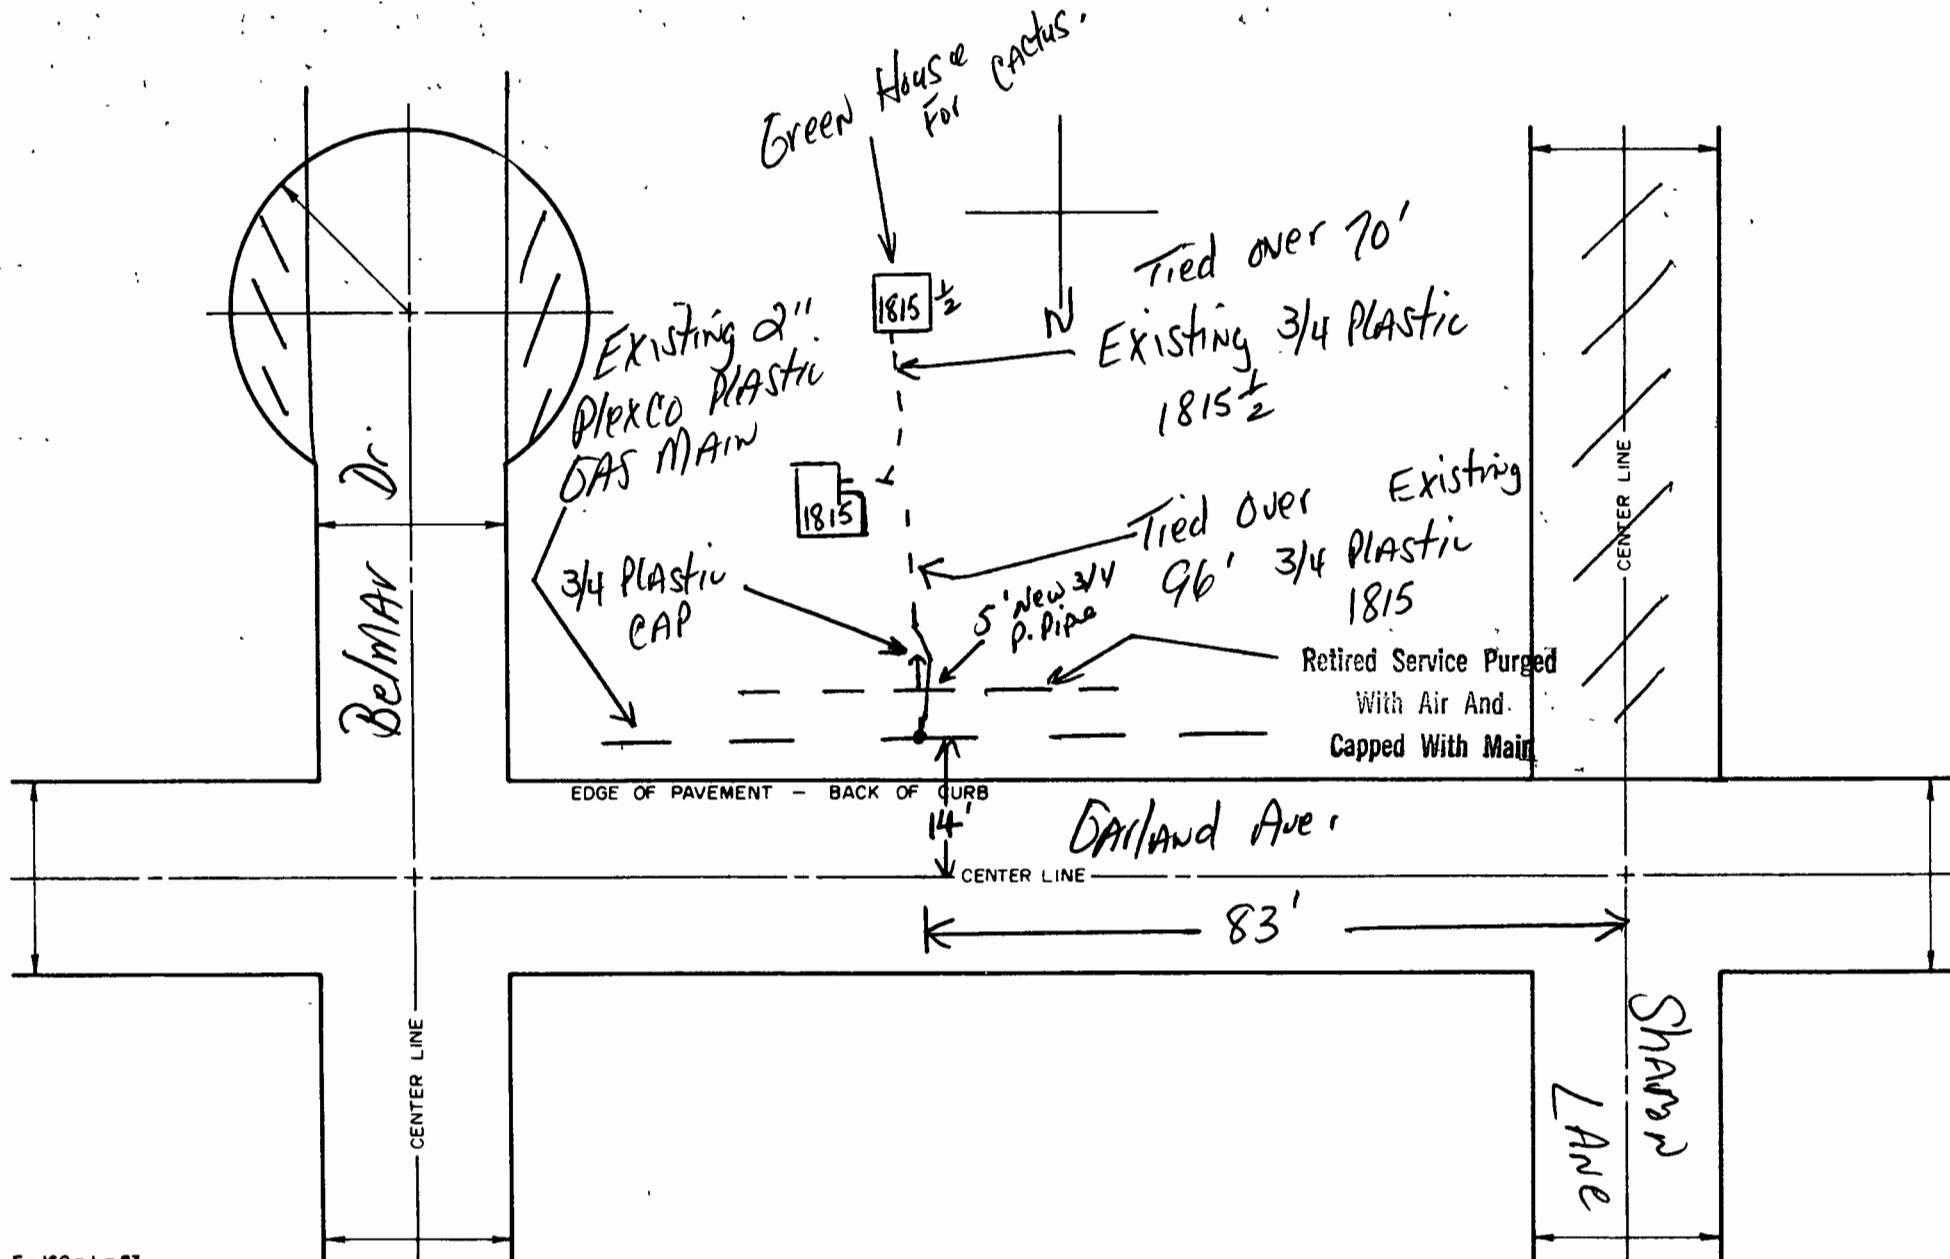 Green House
For Cactus.
1815 1/2
N
Tied over 70'
Existing 3/4 Plastic
1815 1/2
Existing 2"
Plexco Plastic
GAS MAIN
1815
Tied Over Existing
96' 3/4 Plastic
1815
3/4 Plastic
CAP
5' New 3/4
P. Pipe
Retired Service Purged
With Air And
Capped With Main
Belmar Dr.
CENTER LINE
EDGE OF PAVEMENT - BACK OF CURB
14'
Garland Ave.
CENTER LINE
83'
CENTER LINE
LANE